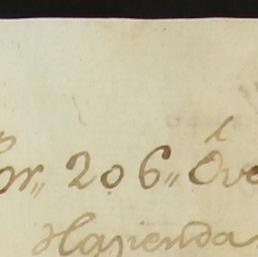 or„ 206„ Ove
Hazienda